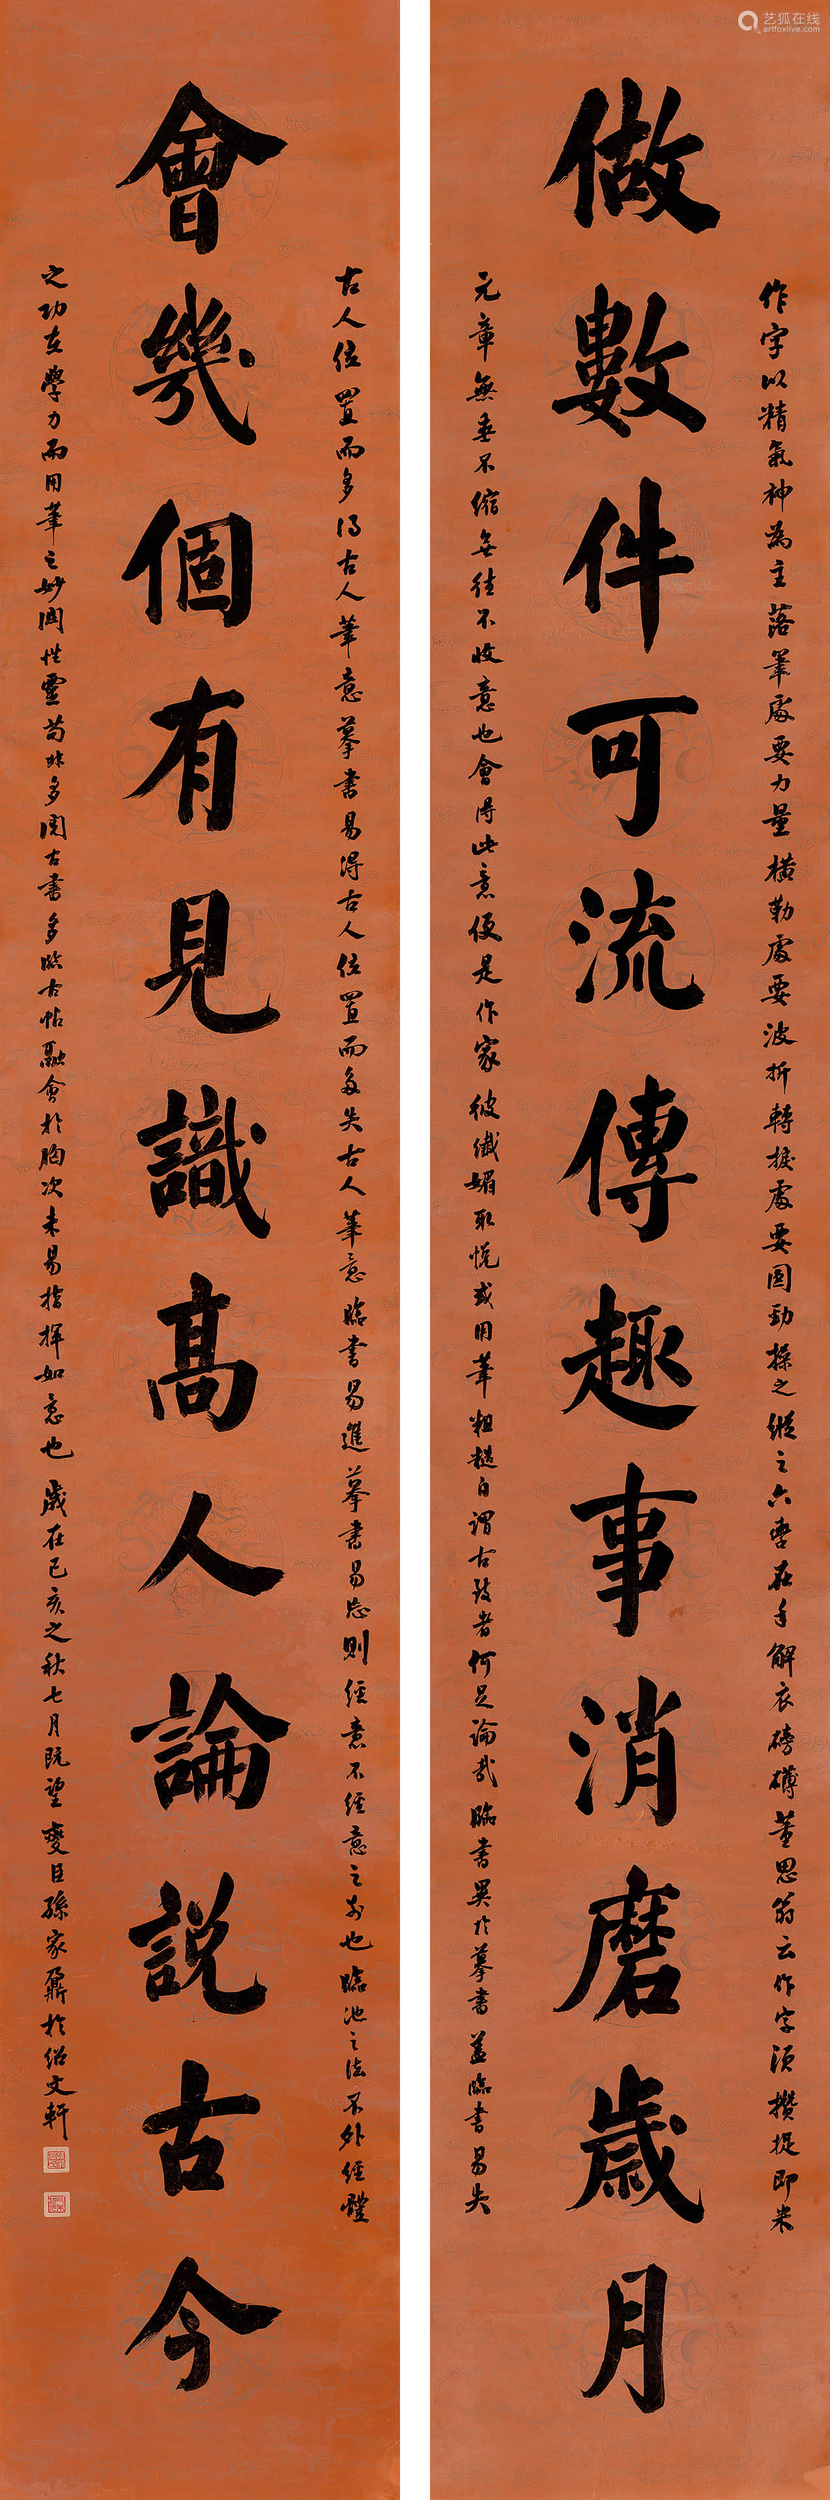 艺狐在线
artfoxlive.com
作字以精氣神為主落筆處要力量橫勒處要波折轉捩處要圓勁操之縱之六轡在手解衣磅礴董思翁云作字須攢捉即米
做數件可流傳趣事消磨歲月
元章無垂不縮無往不收意也會得此意便是作家彼纖媚取悅或用筆粗糙自謂古致者何足論哉臨書異於摹書蓋臨書易失
古人位置而多得古人筆意摹書易得古人位置而多失古人筆意臨書易進摹書易忘則經意不經意之别也臨池之法不外經體
會幾個有見識高人論說古今
之功在學力而用筆之妙關性靈苟非多閱古書多臨古帖融會於胸次未易指揮如意也 歲在己亥之秋七月既望燮臣孫家鼐於紹文軒